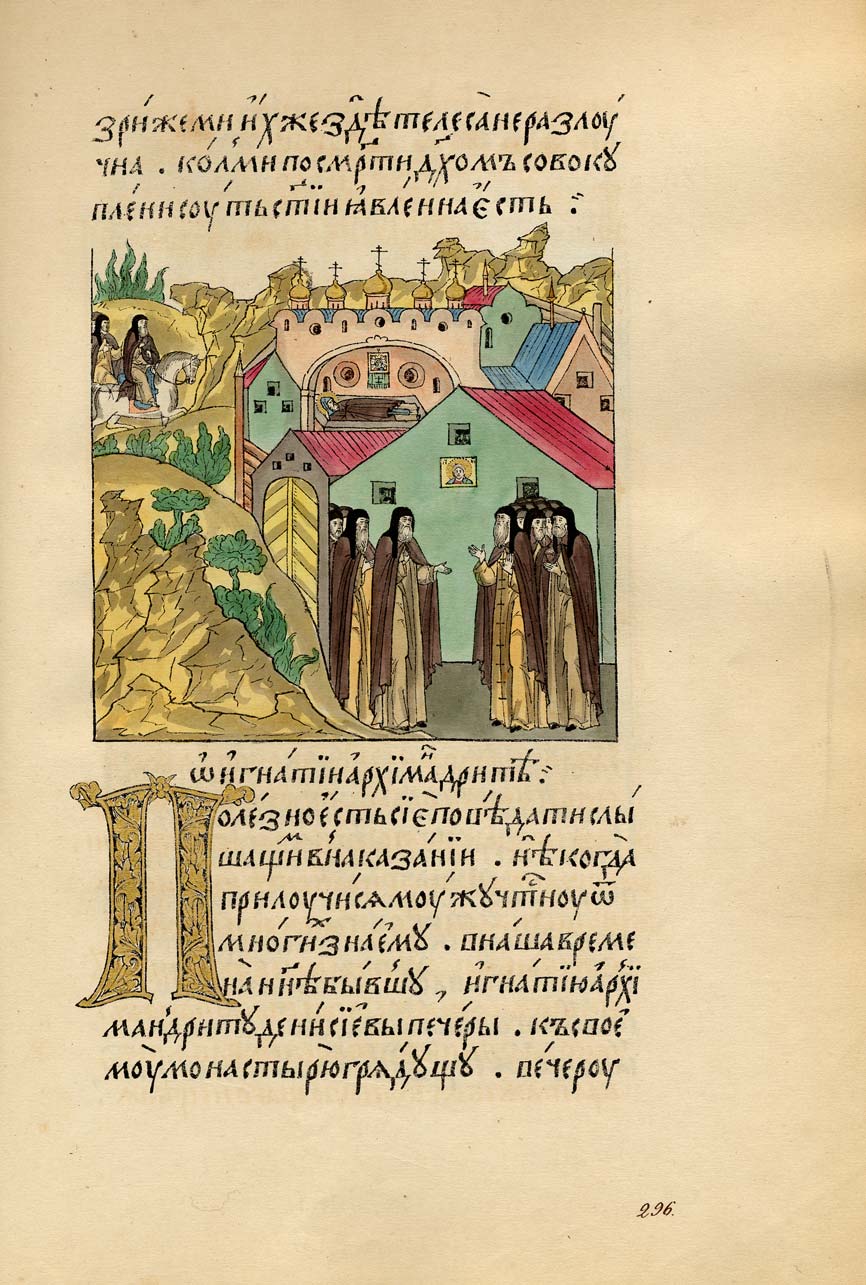 зри́жемнѝхжезд̾ѣтелеса̀неразлоу
чна . ко́лмипосмр҃тидх҃омъсовокꙋ
пле́нисоу́тьст҃і́иꙗ҆вле́ннаєсть :~
ѡ҆и҆гна́тїиа҆рхїмандри́тѣ :~
Поле́зноє҆стьсїѐповѣ́датислы́
шащимвнаказа́нїи . нѣ́когда
прилоучи́сѧмоу́жꙋчт҃ноуѿ
мно́гихзна́емꙋ . внашавреме
нанн҃ѣбы́вшꙋ , и҆гна́тїюа҆рхї
мандри́тꙋденисїевыпече́ры . къ своє
моу́монастырю̀грѧдꙋ́щꙋ . пече́роу
296.